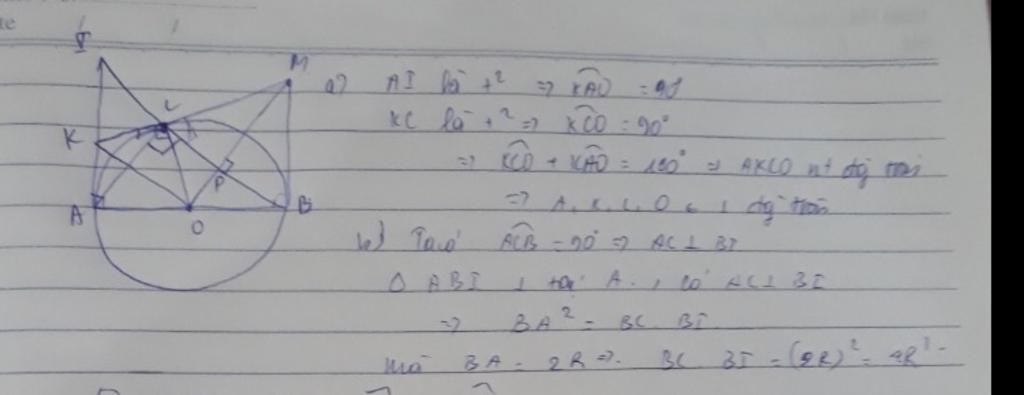 I
M
C
K
P
A
B
O
a) AI là t² => \widehat{KAO} = 90°
KC là t² => \widehat{KCO} = 90°
=> \widehat{KCO} + \widehat{KAO} = 180° => AKCO nt đg tròn
=> A, K, C, O ∈ 1 đg tròn
b) Ta có \widehat{ACB} = 90° => AC ⊥ BI
Δ ABI ⊥ tại A, có AC ⊥ BI
=> BA² = BC. BI
mà BA = 2R => BC. BI = (2R)² = 4R²